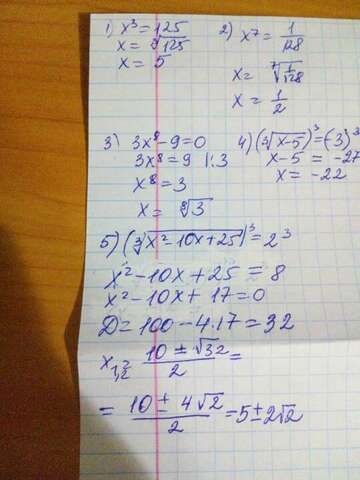 1) x³ = 125
x = ³√125
x = 5
2) x⁷ = 1/128
x = ⁷√(1/128)
x = 1/2
3) 3x⁸ - 9 = 0
3x⁸ = 9 | : 3
x⁸ = 3
x = ⁸√3
4) (³√(x-5))³ = (-3)³
x - 5 = -27
x = -22
5) (³√(x² - 10x + 25))³ = 2³
x² - 10x + 25 = 8
x² - 10x + 17 = 0
D = 100 - 4·17 = 32
x₁,₂ = (10 ± √32)/2 =
= (10 ± 4√2)/2 = 5 ± 2√2